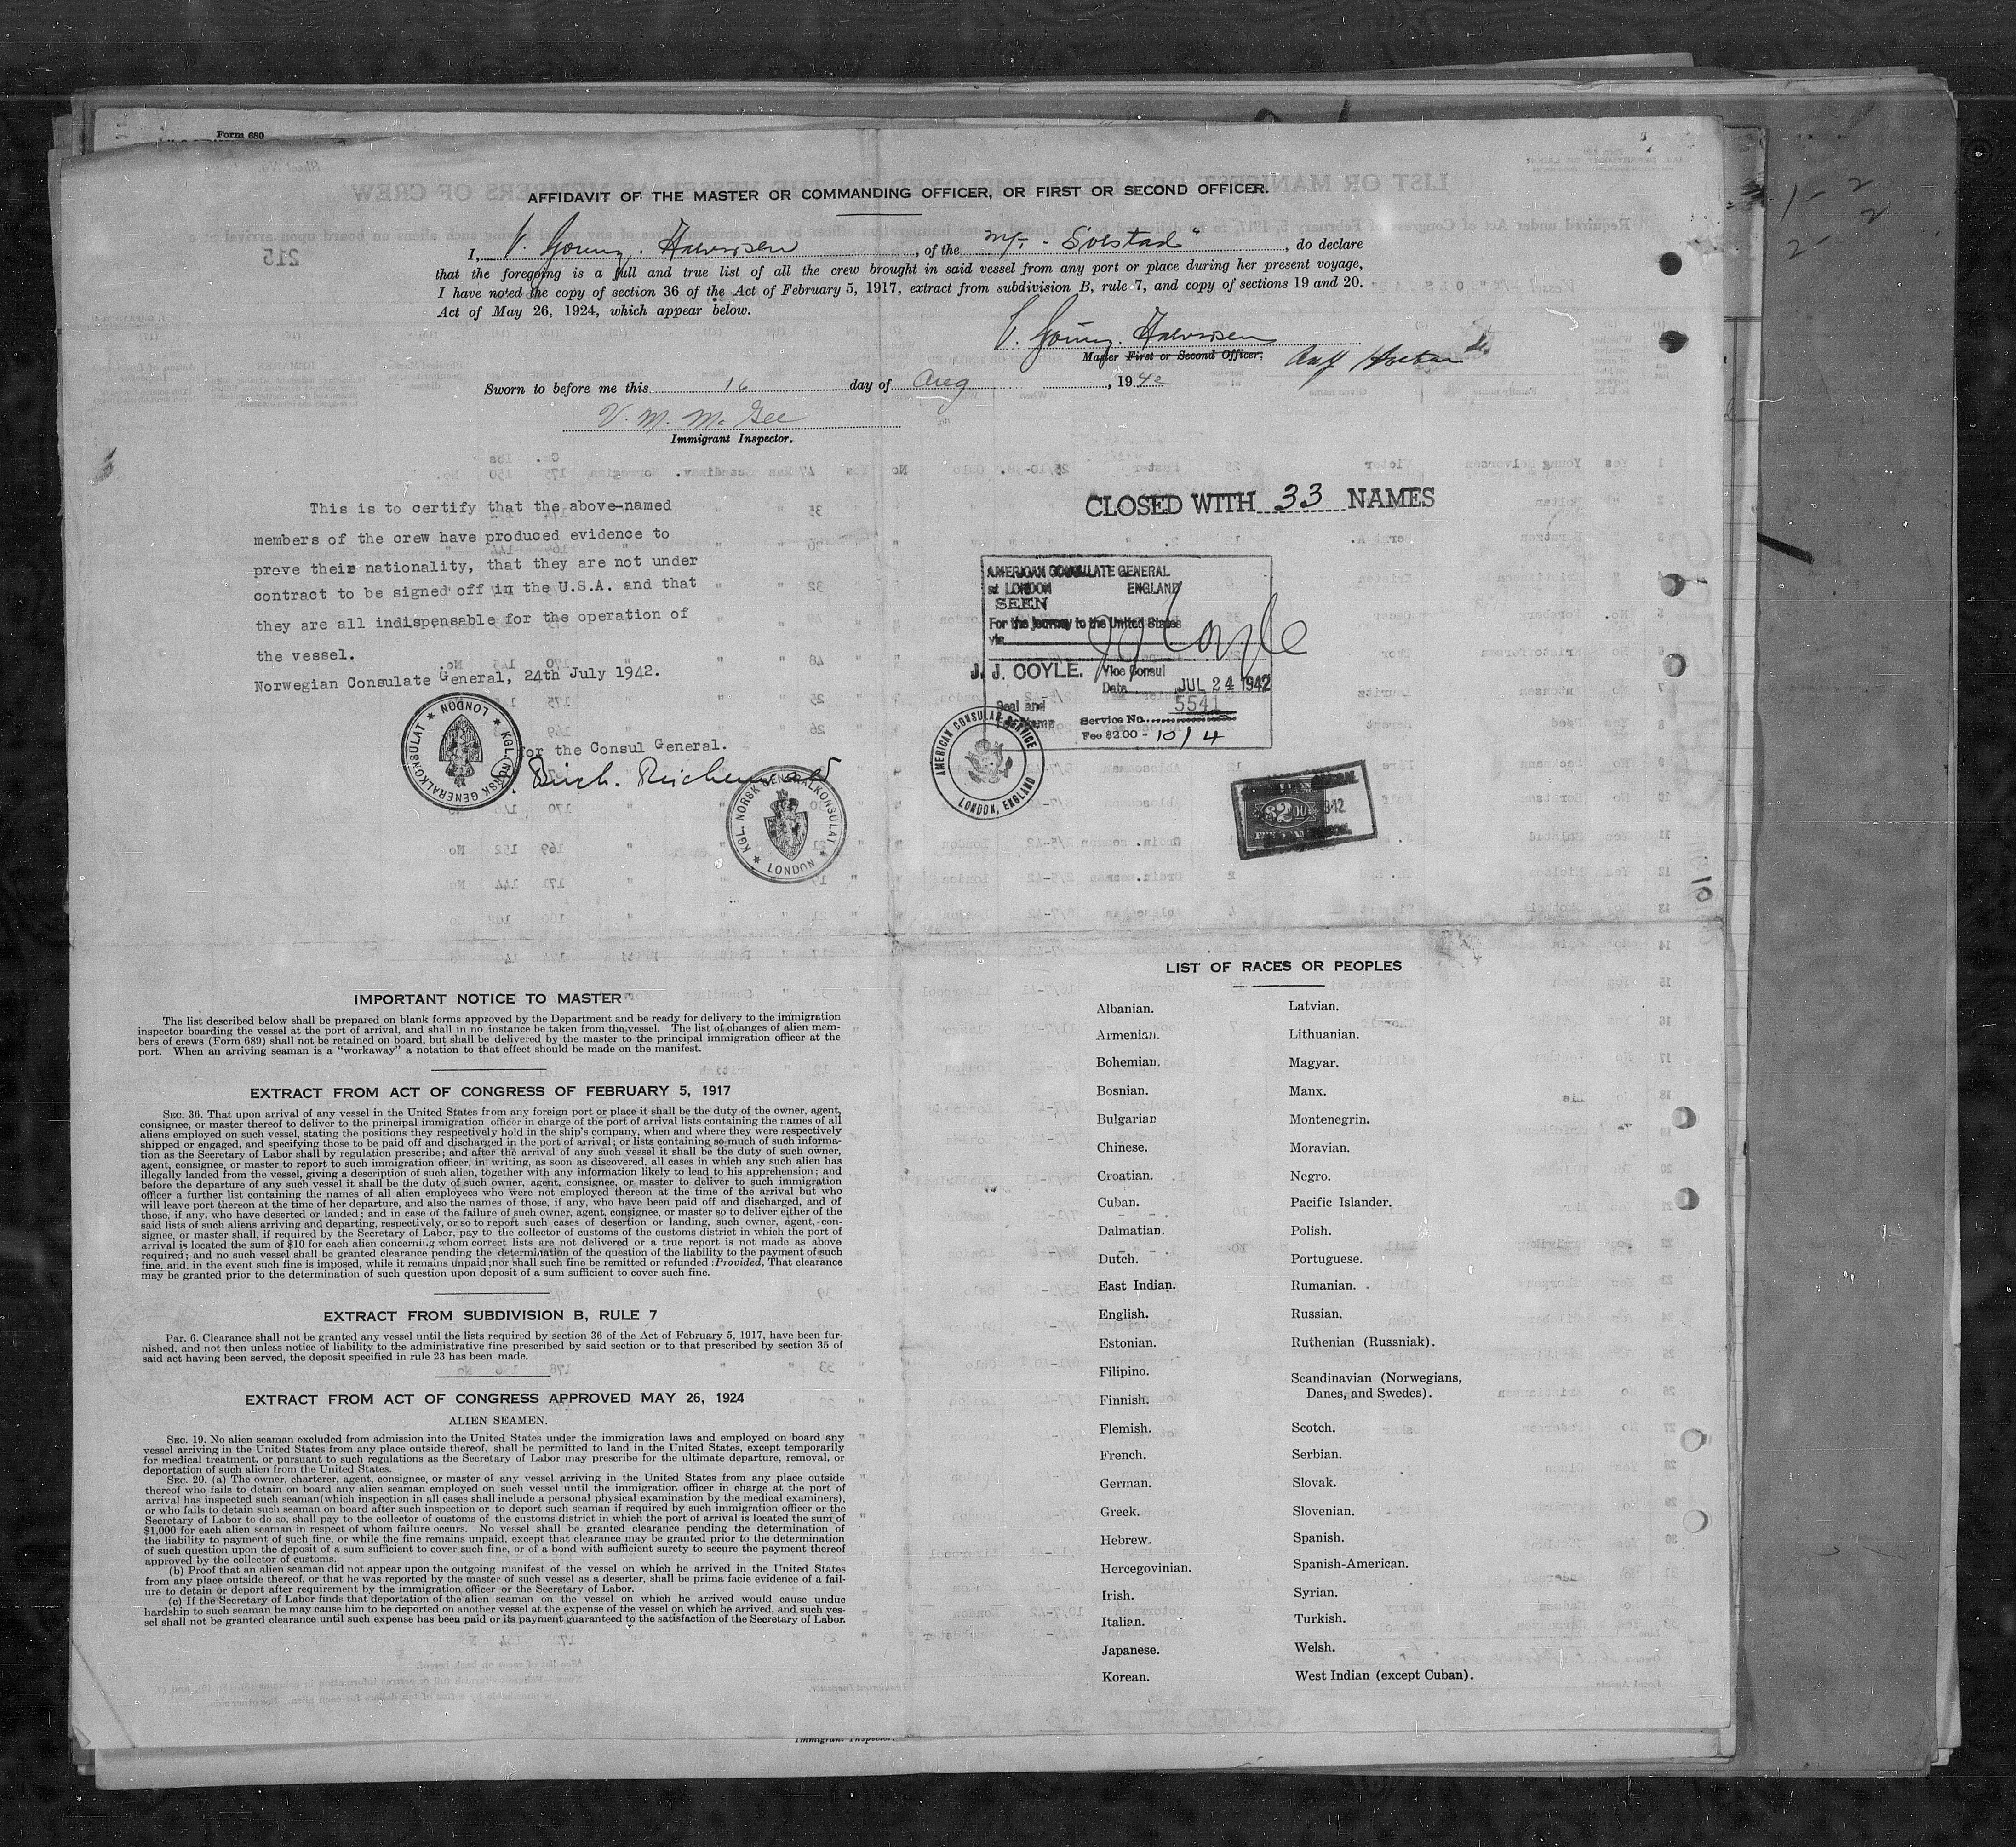 Form 680
AFFIDAVIT OF THE MASTER OR COMMANDING OFFICER, OR FIRST OR SECOND OFFICER.
I, V. Young. Halvorsen, of the M/T "Solstad", do declare
that the foregoing is a full and true list of all the crew brought in said vessel from any port or place during her present voyage,
I have noted the copy of section 36 of the Act of February 5, 1917, extract from subdivision B, rule 7, and copy of sections 19 and 20.
Act of May 26, 1924, which appear below.
V. Young. Halvorsen
Master First or Second Officer.
Sworn to before me this 16 day of Aug, 1942
V. M. McGee
Immigrant Inspector.
215
This is to certify that the above-named
members of the crew have produced evidence to
prove their nationality, that they are not under
contract to be signed off in the U.S.A. and that
they are all indispensable for the operation of
the vessel.
Norwegian Consulate General, 24th July 1942.
For the Consul General.
KGL. NORSK GENERALKONSULAT LONDON
KGL. NORSK GENERALKONSULAT LONDON
CLOSED WITH 33 NAMES
AMERICAN CONSULATE GENERAL
at LONDON ENGLAND
SEEN
For the journey to the United States
via
J. J. COYLE. Vice Consul
Date JUL 24 1942
Seal and
Stamp
5541
Service No.
Fee $2.00 - 10/4
AMERICAN CONSULAR SERVICE
LONDON, ENGLAND
IMPORTANT NOTICE TO MASTER
The list described below shall be prepared on blank forms approved by the Department and be ready for delivery to the immigration
inspector boarding the vessel at the port of arrival, and shall in no instance be taken from the vessel. The list of changes of alien mem-
bers of crews (Form 689) shall not be retained on board, but shall be delivered by the master to the principal immigration officer at the
port. When an arriving seaman is a "workaway" a notation to that effect should be made on the manifest.
EXTRACT FROM ACT OF CONGRESS OF FEBRUARY 5, 1917
SEC. 36. That upon arrival of any vessel in the United States from any foreign port or place it shall be the duty of the owner, agent,
consignee, or master thereof to deliver to the principal immigration officer in charge of the port of arrival lists containing the names of all
aliens employed on such vessel, stating the positions they respectively hold in the ship's company, when and where they were respectively
shipped or engaged, and specifying those to be paid off and discharged in the port of arrival; or lists containing so much of such informa-
tion as the Secretary of Labor shall by regulation prescribe; and after the arrival of any such vessel it shall be the duty of such owner,
agent, consignee, or master to report to such immigration officer, in writing, as soon as discovered, all cases in which any such alien has
illegally landed from the vessel, giving a description of such alien, together with any information likely to lead to his apprehension; and
before the departure of any such vessel it shall be the duty of such owner, agent, consignee, or master to deliver to such immigration
officer a further list containing the names of all alien employees who were not employed thereon at the time of the arrival but who
will leave port thereon at the time of her departure, and also the names of those, if any, who have been paid off and discharged, and of
those, if any, who have deserted or landed; and in case of the failure of such owner, agent, consignee, or master so to deliver either of the
said lists of such aliens arriving and departing, respectively, or so to report such cases of desertion or landing, such owner, agent, con-
signee, or master shall, if required by the Secretary of Labor, pay to the collector of customs of the customs district in which the port of
arrival is located the sum of $10 for each alien concerning whom correct lists are not delivered or a true report is not made as above
required; and no such vessel shall be granted clearance pending the determination of the question of the liability to the payment of such
fine, and, in the event such fine is imposed, while it remains unpaid; nor shall such fine be remitted or refunded: Provided, That clearance
may be granted prior to the determination of such question upon deposit of a sum sufficient to cover such fine.
EXTRACT FROM SUBDIVISION B, RULE 7
Par. 6. Clearance shall not be granted any vessel until the lists required by section 36 of the Act of February 5, 1917, have been fur-
nished, and not then unless notice of liability to the administrative fine prescribed by said section or to that prescribed by section 35 of
said act having been served, the deposit specified in rule 23 has been made.
EXTRACT FROM ACT OF CONGRESS APPROVED MAY 26, 1924
ALIEN SEAMEN.
SEC. 19. No alien seaman excluded from admission into the United States under the immigration laws and employed on board any
vessel arriving in the United States from any place outside thereof, shall be permitted to land in the United States, except temporarily
for medical treatment, or pursuant to such regulations as the Secretary of Labor may prescribe for the ultimate departure, removal, or
deportation of such alien from the United States.
SEC. 20. (a) The owner, charterer, agent, consignee, or master of any vessel arriving in the United States from any place outside
thereof who fails to detain on board any alien seaman employed on such vessel until the immigration officer in charge at the port of
arrival has inspected such seaman (which inspection in all cases shall include a personal physical examination by the medical examiners),
or who fails to detain such seaman on board after such inspection or to deport such seaman if required by such immigration officer or the
Secretary of Labor to do so, shall pay to the collector of customs of the customs district in which the port of arrival is located the sum of
$1,000 for each alien seaman in respect of whom failure occurs. No vessel shall be granted clearance pending the determination of
the liability to payment of such fine, or while the fine remains unpaid, except that clearance may be granted prior to the determination
of such question upon the deposit of a sum sufficient to cover such fine, or of a bond with sufficient surety to secure the payment thereof
approved by the collector of customs.
(b) Proof that an alien seaman did not appear upon the outgoing manifest of the vessel on which he arrived in the United States
from any place outside thereof, or that he was reported by the master of such vessel as a deserter, shall be prima facie evidence of a fail-
ure to detain or deport after requirement by the immigration officer or the Secretary of Labor.
(c) If the Secretary of Labor finds that deportation of the alien seaman on the vessel on which he arrived would cause undue
hardship to such seaman he may cause him to be deported on another vessel at the expense of the vessel on which he arrived, and such ves-
sel shall not be granted clearance until such expense has been paid or its payment guaranteed to the satisfaction of the Secretary of Labor.
LIST OF RACES OR PEOPLES
Albanian.
Armenian.
Bohemian.
Bosnian.
Bulgarian
Chinese.
Croatian.
Cuban.
Dalmatian.
Dutch.
East Indian.
English.
Estonian.
Filipino.
Finnish.
Flemish.
French.
German.
Greek.
Hebrew.
Hercegovinian.
Irish.
Italian.
Japanese.
Korean.
Latvian.
Lithuanian.
Magyar.
Manx.
Montenegrin.
Moravian.
Negro.
Pacific Islander.
Polish.
Portuguese.
Rumanian.
Russian.
Ruthenian (Russniak).
Scandinavian (Norwegians,
Danes, and Swedes).
Scotch.
Serbian.
Slovak.
Slovenian.
Spanish.
Spanish-American.
Syrian.
Turkish.
Welsh.
West Indian (except Cuban).
Immigrant Inspector.